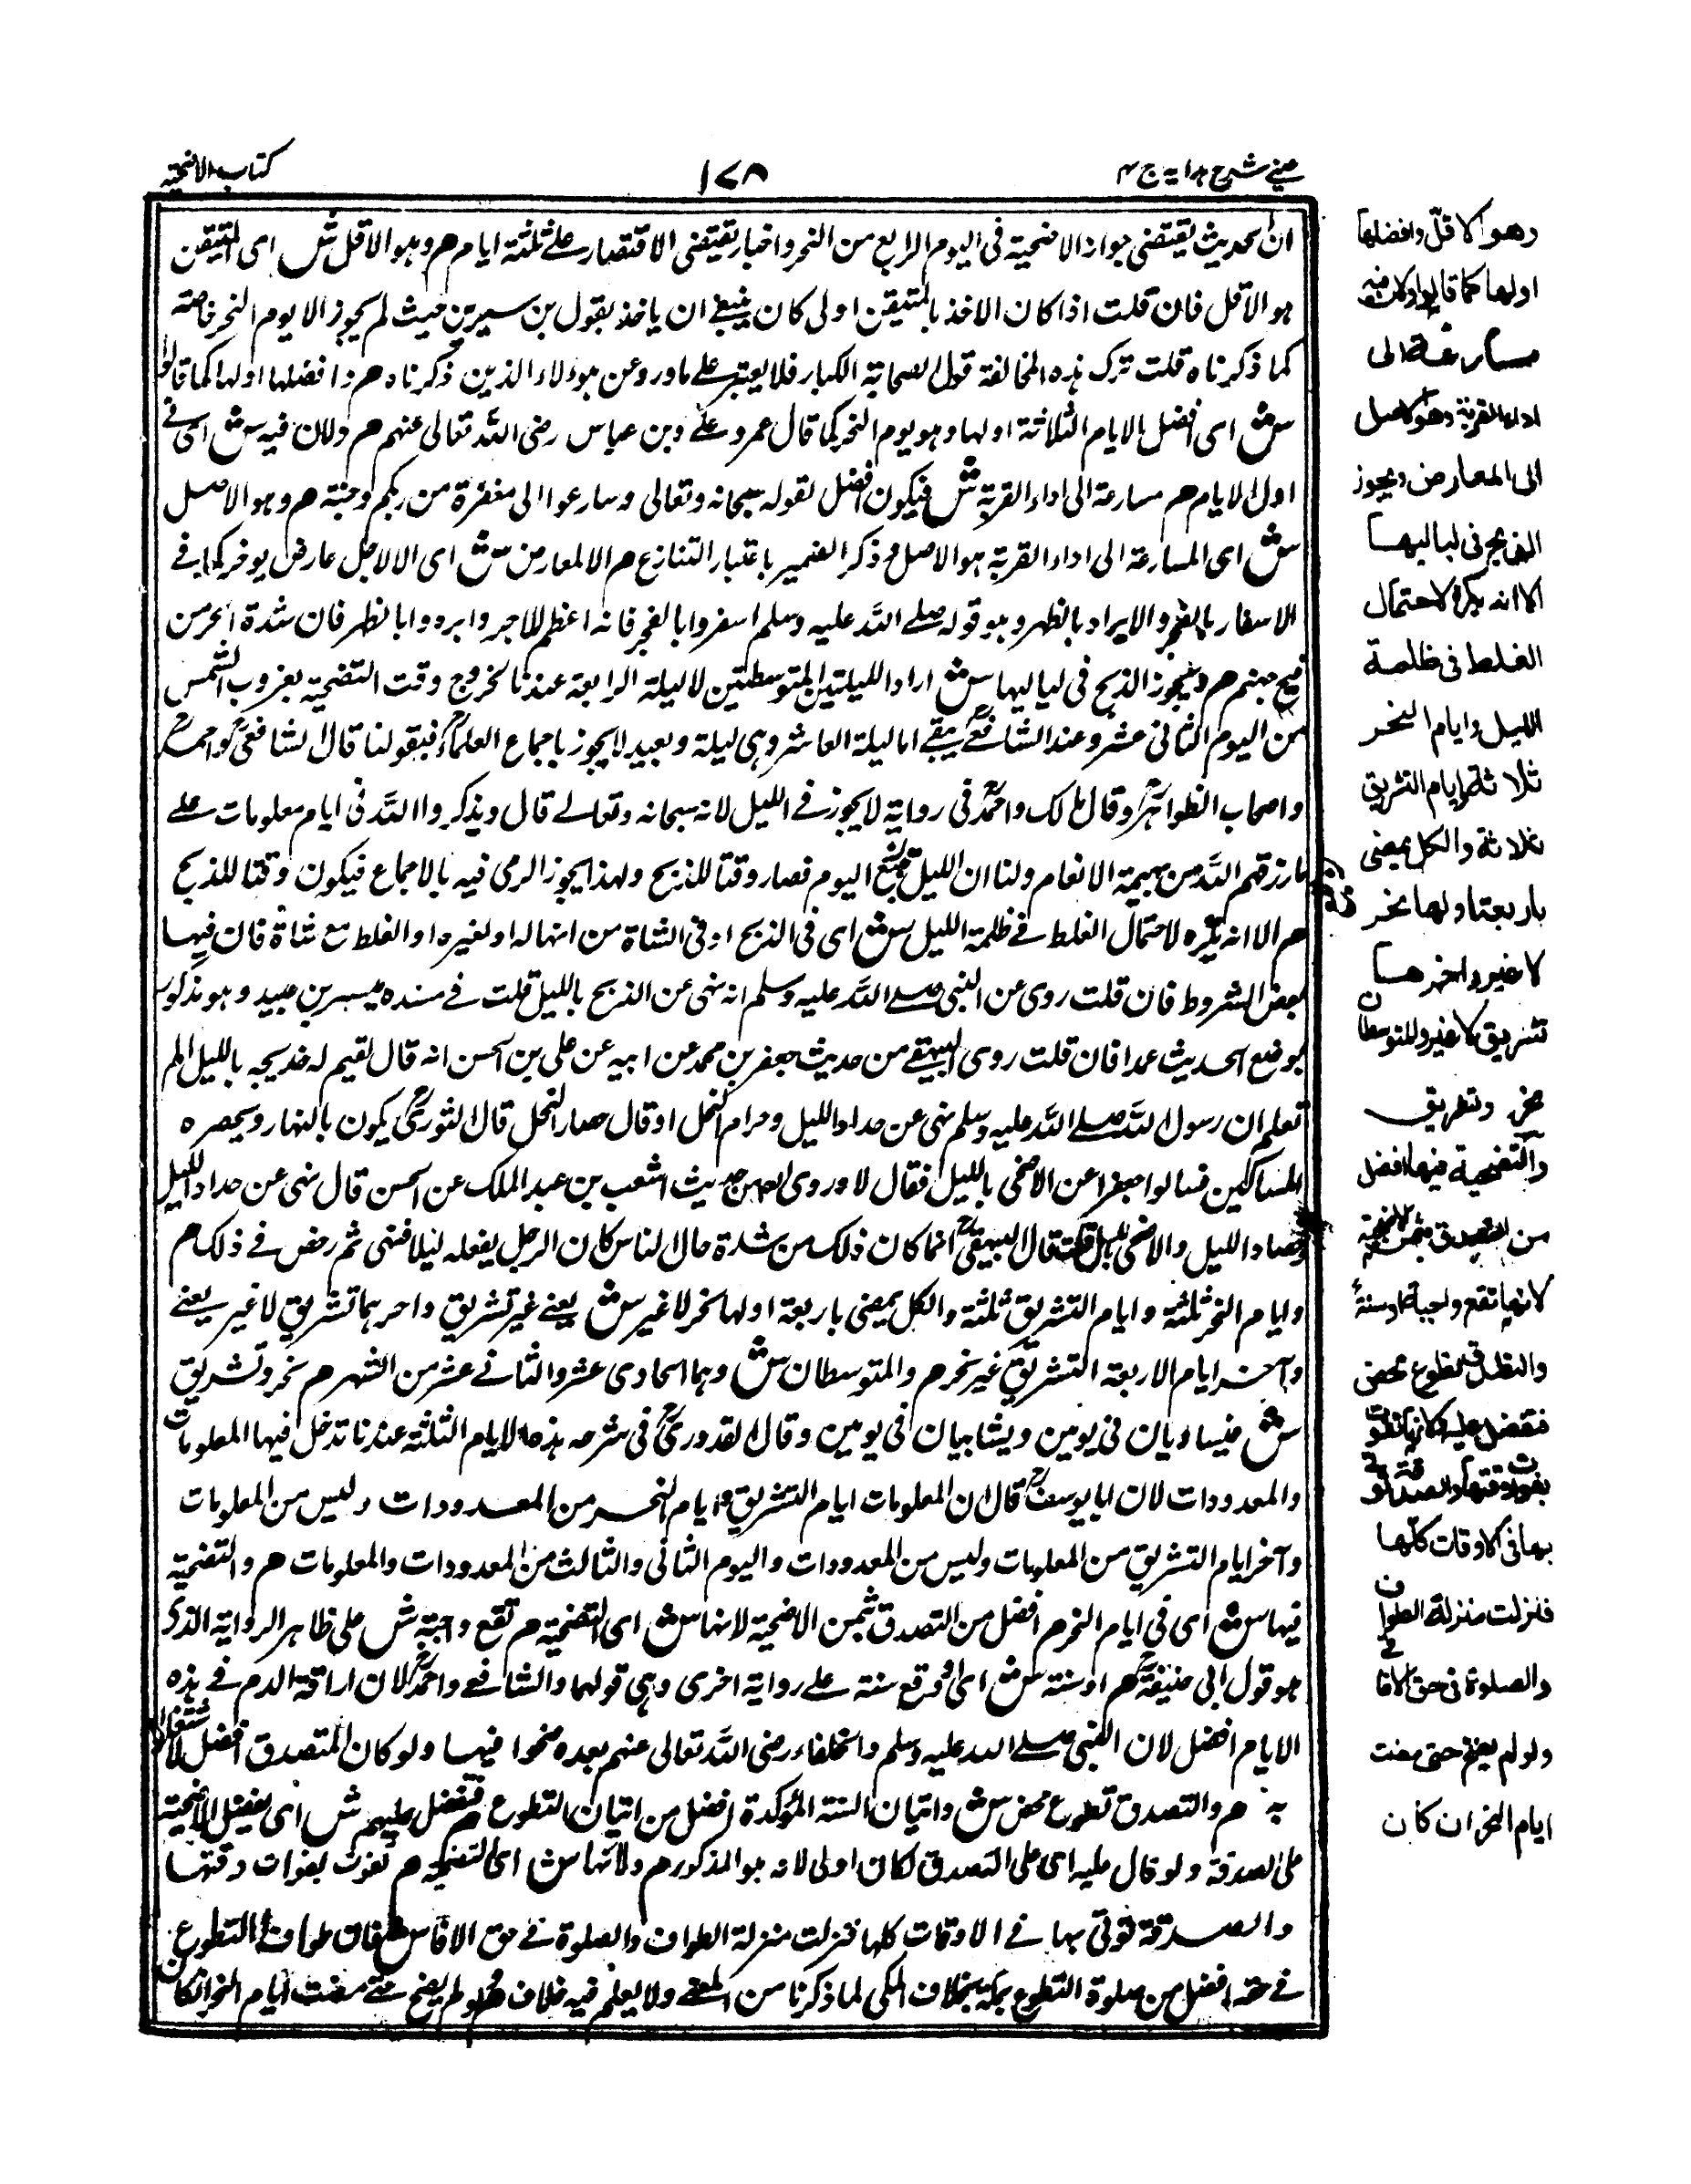 عيني شرح هدايه ج ۴
۱۷۸
كتاب الاضحية
ان الحديث يقتضى جواز الاضحية فى اليوم الرابع من النحر واخبار تقتضى الاقتصار على ثلثة ايام هر وهو الاقل ش اى المتيقن
هو الاقل فان قلت اذا كان الاخذ بالمتيقن اولى كان ينبغى ان ياخذ بقول بن سيرين حيث لم يجوز الا يوم النحر خاصته
كما ذكرناه قلت ترك هذه المخالفة قول الصحابة الكبار فلا يعتبر على ما ورد عن هولاء الذين ذكرناه هر وافضلها اولها كما قالوا
ش اى افضل الايام الثلاثة اولها وهو يوم النحر كما قال عمر وعلى وبن عباس رضى الله تعالى عنهم هر ولان فيه ش اى فى
اول الايام هر مسارعة الى اداء القربة ش فيكون افضل لقوله سبحانه وتعالى وسارعوا الى مغفرة من ربكم وجنة هر وهو الاصل
ش اى المسارعة الى اداء القربة هو الاصل وذكر الضمير باعتبار التنازع هر الا لمعارض ش اى الا لاجل عارض يوخر كما فى
الاسفار بالفجر والابراد بالظهر وهو قوله صلے الله عليه وسلم اسفروا بالفجر فانه اعظم للاجر وابردوا بالظهر فان شدة الحر من
فيح جهنم هر ويجوز الذبح فى لياليها ش اراد الليلتين المتوسطتين لا ليلة الرابعة عندنا لخروج وقت التضحية بغروب الشمس
من اليوم الثانى عشر وعند الشافعى يبقے اما ليلة العاشر وهى ليلة وبعيد لا يجوز باجماع العلماء فبقولنا قال الشافعى واحمد
واصحاب الظواهر وقال مالك واحمد فى رواية لا يجوز فے الليل لانه سبحانه وتعالے قال ويذكروا الله فى ايام معلومات علے
ما رزقهم الله من بهيمة الانعام ولنا ان الليل تبع اليوم فصار وقتا للذبح ولهذا يجوز الرمى فيه بالاجماع فيكون وقتا للذبح
هر الا انه يكره لاحتمال الغلط فے ظلمة الليل ش اى فى الذبح او فى الشاة من انها له او لغيره او الغلط مع شاة فان فيها
بعض الشروط فان قلت روى عن النبى صلے الله عليه وسلم انه نهى عن الذبح بالليل قلت فے سنده ميسر بن عبيد وهو مذكور
بوضع الحديث عمدا فان قلت روى البيهقے من حديث جعفر بن محمد عن ابيه عن على بن الحسن انه قال لقيم له خديجه بالليل الم
تعلم ان رسول الله صلے الله عليه وسلم نهى عن حداد الليل وحرام النخل او قال حصار النخل قال الثورى يكون بالنهار ويحصره
المساكين فسالوا جعفرا عن الاضحى بالليل فقال لا وروى له من حديث اشعب بن عبد الملك عن الحسن قال نهى عن حداد الليل
وحصاد الليل والاضحى بالليل قلت قال البيهقى انما كان ذلك من شدة حال الناس كان الرجل يفعله ليلا فنهى ثم رخص فے ذلك هر
وايام النحر ثلثة وايام التشريق ثلثة والكل يمضى باربعة اولها نحر لا غير ش يعنے غير تشريق واخرهما تشريق لا غير يعنے
وآخر ايام الاربعة التشريق غير نحر هر والمتوسطان ش وهما الحادى عشر والثانے عشر من الشهر هر نحر وتشريق
ش فيساويان فى يومين ويشابيان فى يومين وقال القدورى فى شرحه هذه الايام الثلثة عندنا تدخل فيها المعلومات
والمعدودات لان ابا يوسف قال ان المعلومات ايام التشريق وايام النحر من المعدودات وليس من المعلومات
وآخر ايام التشريق من المعلومات وليس من المعدودات واليوم الثانى والثالث من المعدودات والمعلومات هر والتضحية
فيها ش اى فى ايام النحر هر افضل من التصدق بثمن الاضحية لانها ش اى التضحية هر تقع واجبة ش على ظاهر الرواية الذى
هو قول ابى حنيفة هر او سنة ش اى وقع سنة علے رواية اخرى وهى قولهما والشافعے واحمد لان اراقة الدم فے هذه
الايام افضل لان النبى صلے الله عليه وسلم والخلفاء رضى الله تعالى عنهم بعده ضحوا فيها ولو كان التصدق افضل لاشتغلوا
به هر والتصدق تطوع محض ش واتيان السنة المؤكدة افضل من اتيان التطوع هر فتفضل عليهم ش اى يفضل الاضحية
على الصدقة ولو قال عليه اى على التصدق لكان اولى لانه هو المذكور هر ولانها ش اى التضحية هر تفوت بفوات وقتها
والصدقة توتى بها فے الاوقات كلها فنزلت منزلة الطواف والصلوة فے حق الافاقى ش فان طواف التطوع
فے حقه افضل من صلوة التطوع بمكة بخلاف المكى لما ذكرنا من المعنے ولا يعلم فيه خلاف هر ولو لم يضح حتے مضت ايام النحر ان كان
وهو الاقل وافضلها
اولها كما قالوا ولان فيه
مسارعة الى
اداء القربة وهو الاصل
الا لمعارض ويجوز
الذبح فى لياليها
الا انه يكره لاحتمال
الغلط فى ظلمة
الليل وايام النحر
ثلاثة وايام التشريق
ثلاثة والكل يمضى
باربعة اولها نحر
لا غير واخرها
تشريق لا غير والمتوسطان
نحر وتشريق
والتضحية فيها افضل
من التصدق بثمن الاضحية
لانها تقع واجبة او سنة
والتصدق تطوع محض
فتفضل عليه لانها تفوت
بفوات وقتها والصدقة توتى
بها فى الاوقات كلها
فنزلت منزلة الطواف
والصلوة فى حق الافاقى
ولو لم يضح حتى مضت
ايام النحر ان كان